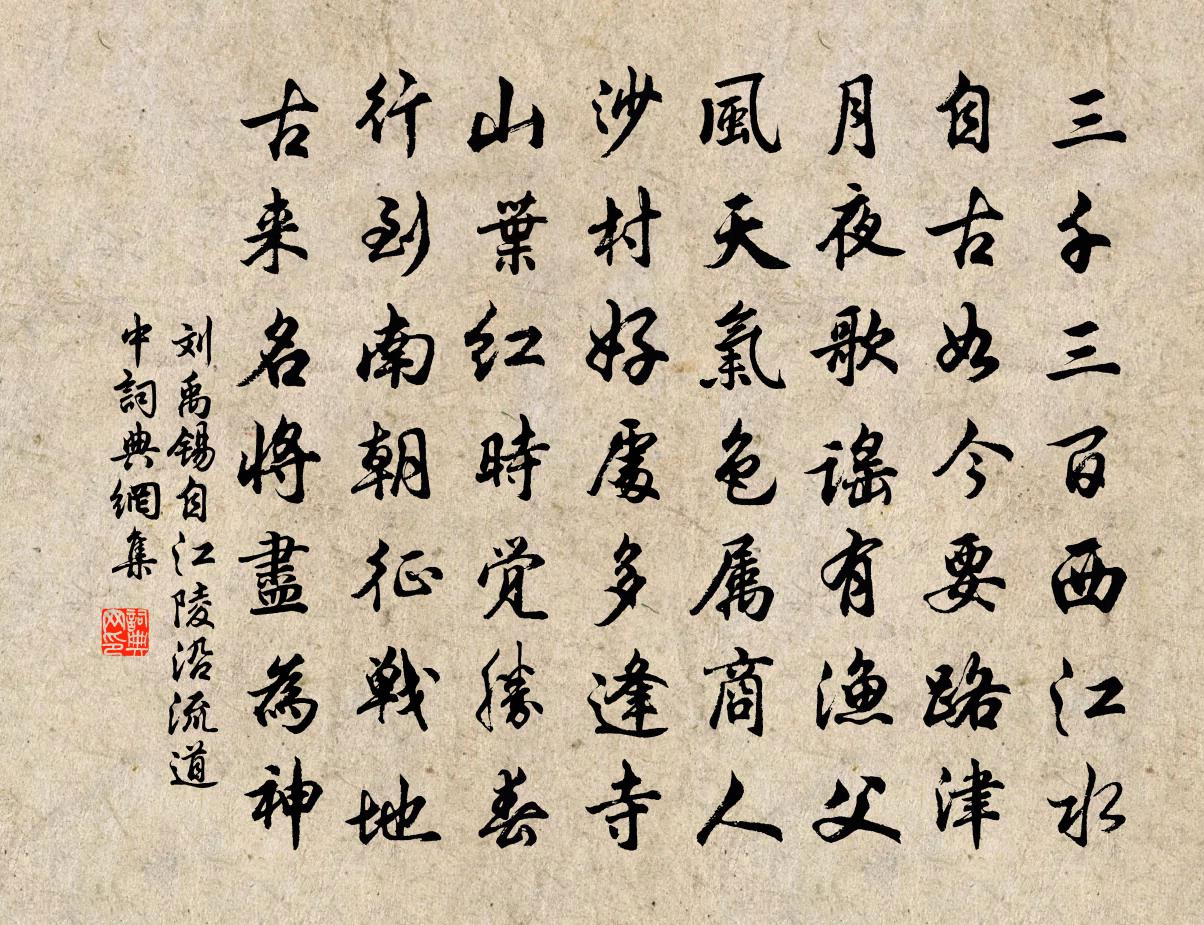 三千三百西江水
自古如今要路津
月夜歌謠有漁父
風天氣色属商人
沙村好處多逢寺
山葉红時觉勝春
行到南朝征戰地
古来名將盡為神
刘禹锡自江陵沿流道
中詞典網集
詞典网印